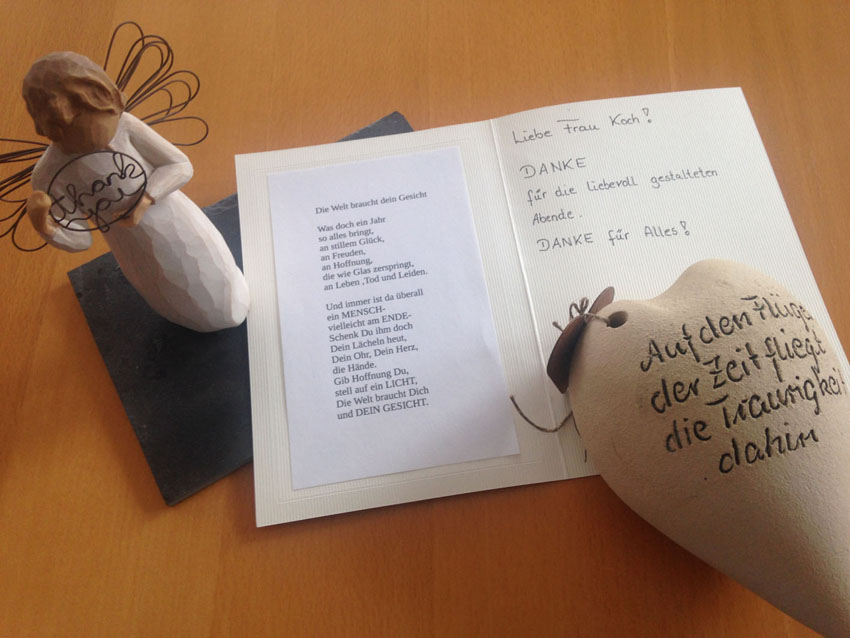 thank
you
Die Welt braucht dein Gesicht
Was doch ein Jahr
so alles bringt,
an stillem Glück,
an Freuden,
an Hoffnung,
die wie Glas zerspringt,
an Leben ,Tod und Leiden.
Und immer ist da überall
ein MENSCH-
vielleicht am ENDE-
Schenk Du ihm doch
Dein Lächeln heut,
Dein Ohr, Dein Herz,
die Hände.
Gib Hoffnung Du,
stell auf ein LICHT,
Die Welt braucht Dich
und DEIN GESICHT.
Liebe Frau Koch!
DANKE
für die liebevoll gestalteten
Abende.
DANKE für Alles!
Auf den Flüge
der Zeit fliegt
die Traurigkeit
dahin